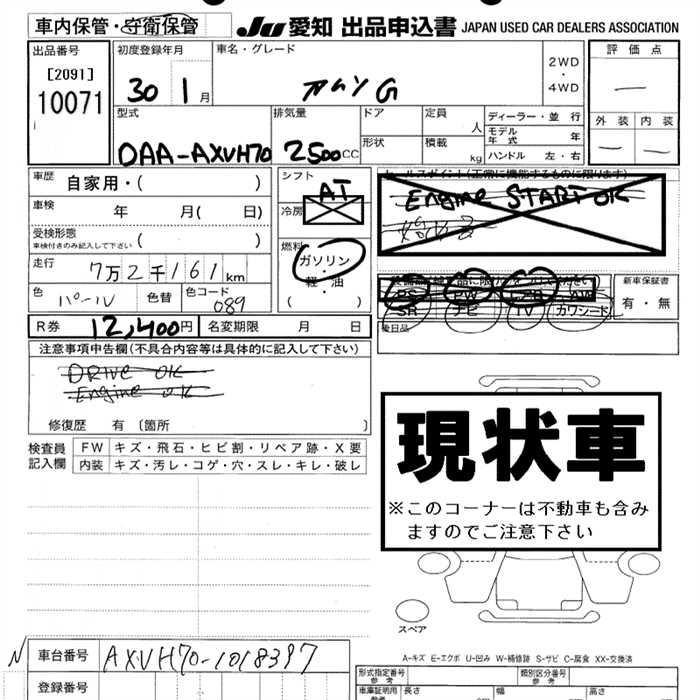 車内保管・守衛保管
JU 愛知 出品申込書 JAPAN USED CAR DEALERS ASSOCIATION
出品番号
[2091]
10071
初度登録年月
30 1 月
車名・グレード
カムリ G
2WD
・
4WD
評価点
—
外装 内装
— —
型式
DAA-AXVH70
排気量
2500 CC
ドア
形状
定員
人
積載
kg
ディーラー・並行
モデル年式 年
ハンドル 左・右
車歴 自家用・( )
車検 年 月( 日)
受検形態
車検付きのみ記入して下さい ( )
走行 7万2千161 km
色 パール 色替 色コード 089
シフト
AT
冷房
燃料
ガソリン
・
軽・油
( )
セールスポイント(正常に機能するものに限ります)
Engine START OK
PS PW AW
SR ナビ TV カワシート
新車保証書
有・無
後日品
R券 12,400円 名変期限 月 日
注意事項申告欄(不具合内容等は具体的に記入して下さい)
DRIVE OK
Engine OK
修復歴 有 〔箇所 〕
検査員記入欄
FW キズ・飛石・ヒビ割・リペア跡・X要
内装 キズ・汚レ・コゲ・穴・スレ・キレ・破レ
現状車
※このコーナーは不動車も含み
ますのでご注意下さい
スペア
A-キズ E-エクボ U-凹み W-補修跡 S-サビ C-腐食 XX-交換済
N 車台番号 AXVH70-1018397
登録番号
形式指定番号
参考
類別区分番号
参考
車庫証明用
参考
長さ 幅 高さ